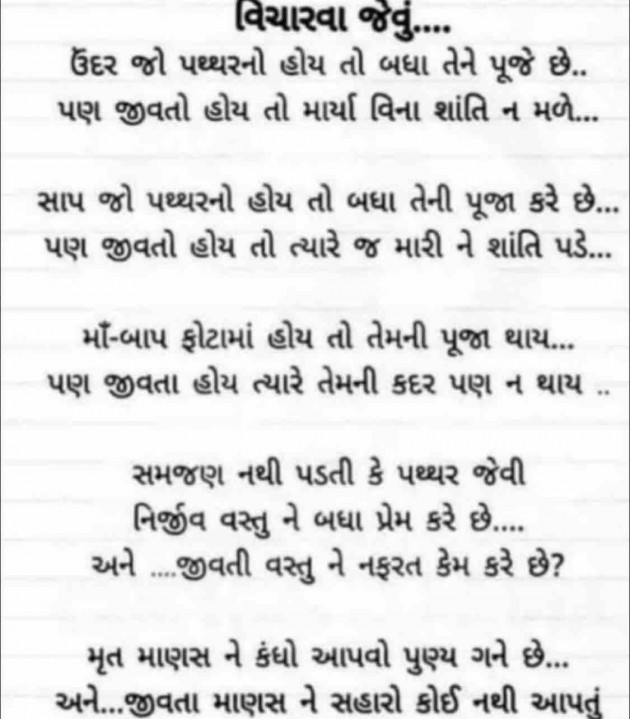 વિચારવા જેવું....
ઉંદર જો પથ્થરનો હોય તો બધા તેને પૂજે છે..
પણ જીવતો હોય તો માર્યા વિના શાંતિ ન મળે...
સાપ જો પથ્થરનો હોય તો બધા તેની પૂજા કરે છે...
પણ જીવતો હોય તો ત્યારે જ મારી ને શાંતિ પડે...
માઁ-બાપ ફોટામાં હોય તો તેમની પૂજા થાય...
પણ જીવતા હોય ત્યારે તેમની કદર પણ ન થાય ..
સમજણ નથી પડતી કે પથ્થર જેવી
નિર્જીવ વસ્તુ ને બધા પ્રેમ કરે છે....
અને ....જીવતી વસ્તુ ને નફરત કેમ કરે છે?
મૃત માણસ ને કંધો આપવો પુણ્ય ગને છે...
અને...જીવતા માણસ ને સહારો કોઈ નથી આપતું